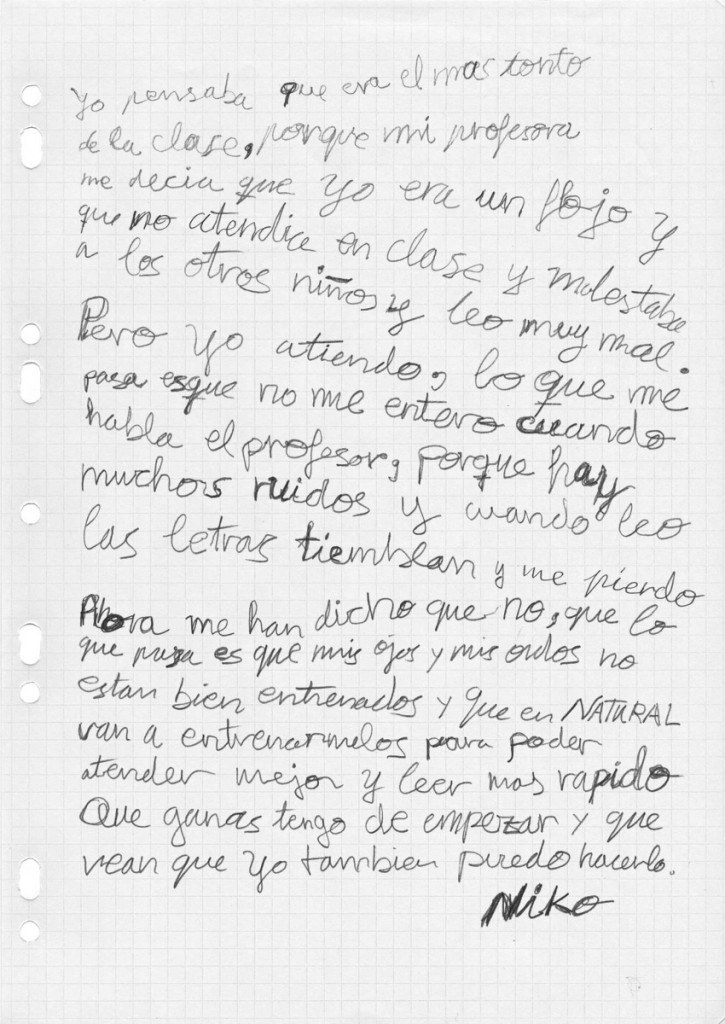 Yo pensaba que era el mas tonto
de la clase, porque mi profesora
me decia que yo era un flojo y
que no atendia en clase y molestaba
a los otros niños y leo muy mal.
Pero yo atiendo, lo que me
pasa esque no me entero cuando
habla el profesor, porque hay
muchos ruidos y cuando leo
las letras tiemblan y me pierdo
Ahora me han dicho que no, que lo
que pasa es que mis ojos y mis oidos no
estan bien entrenados y que en NATURAL
van a entrenarmelos para poder
atender mejor y leer mas rapido
Que ganas tengo de empezar y que
vean que yo tambien puedo hacerlo.
Niko